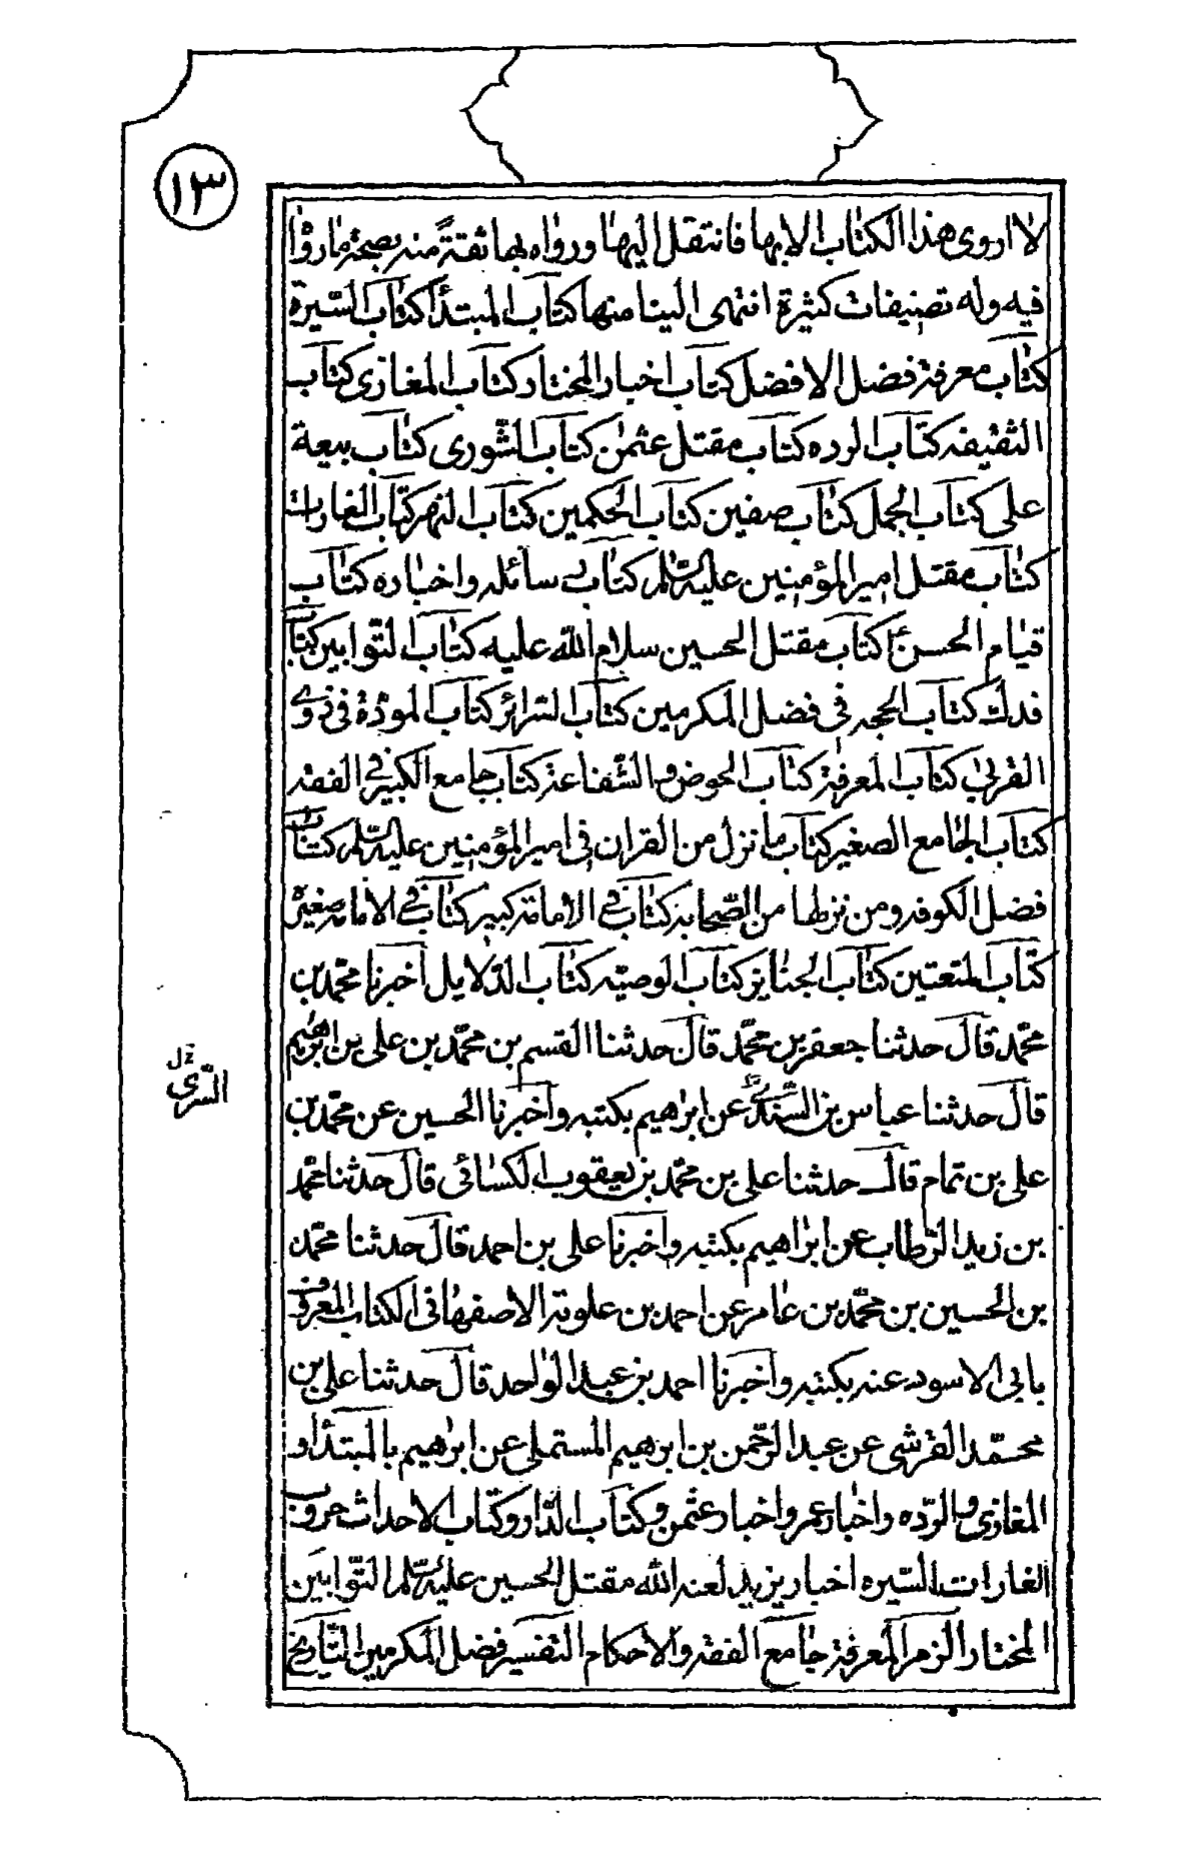 ١٣
لا اروى هذا الكتاب الا بها فانتقل اليها ورواه بها ثقةً منه بصحة ما رووا
فيه وله تصنيفات كثيرة انتهى الينا منها كتاب المبتدأ كتاب السّيرة
كتاب معرفة فضل الافضل كتاب اخبار المختار كتاب المغازى كتاب
الثقيفه كتاب الرده كتاب مقتل عثمن كتاب الشّورى كتاب بيعة
على كتاب الجمل كتاب صفين كتاب الحكمين كتاب النهر كتاب الغارات
كتاب مقتل امير المؤمنين عليه السّلم كتاب رسائله واخباره كتاب
قيام الحسن ع كتاب مقتل الحسين سلام الله عليه كتاب التّوابين كتاب
فدك كتاب الحجه فى فضل المكرمين كتاب السّرائر كتاب المودّة فى ذوى
القربى كتاب المعرفة كتاب الحوض والشّفاعة كتاب جامع الكبير فى الفقه
كتاب الجامع الصغير كتاب ما نزل من القران فى امير المؤمنين عليه السّلم كتاب
فضل الكوفه ومن نزلها من الصّحابة كتاب فى الامامة كبير كتاب فى الامامه صغير
كتاب المتعتين كتاب الجنايز كتاب الوصيّه كتاب الدّلايل أخبرنا محمّد بن
محمّد قال حدثنا جعفر بن محمّد قال حدثنا القسم بن محمّد بن على بن ابرهيم
قال حدثنا عباس بن السّندى عن ابراهيم بكتبه واخبرنا الحسين عن محمّد بن
السّرى
خ ل
على بن تمام قال حدثنا على بن محمّد بن يعقوب الكسائى قال حدثنا محمّد
بن زيد الرّطاب عن ابراهيم بكتبه واخبرنا على بن احمد قال حدثنا محمّد
بن الحسين بن محمّد بن عامر عن احمد بن علوية الاصفهانى الكتاب المعروف
بابى الاسود عنه بكتبه واخبرنا احمد بن عبد الواحد قال حدثنا على بن
محمّد القرشى عن عبد الرّحمن بن ابرهيم المستملى عن ابراهيم بالمبتدأ و
المغازى والردّه واخبار عمر واخبار عثمن وكتاب الدّار وكتاب الاحداث حروب
الغارات السّيره اخبار يزيد لعنه الله مقتل الحسين عليه السّلم التّوابين
المختار الزمر المعرفة جامع الفقه والاحكام التفسير فضل المكرمين التّاريخ